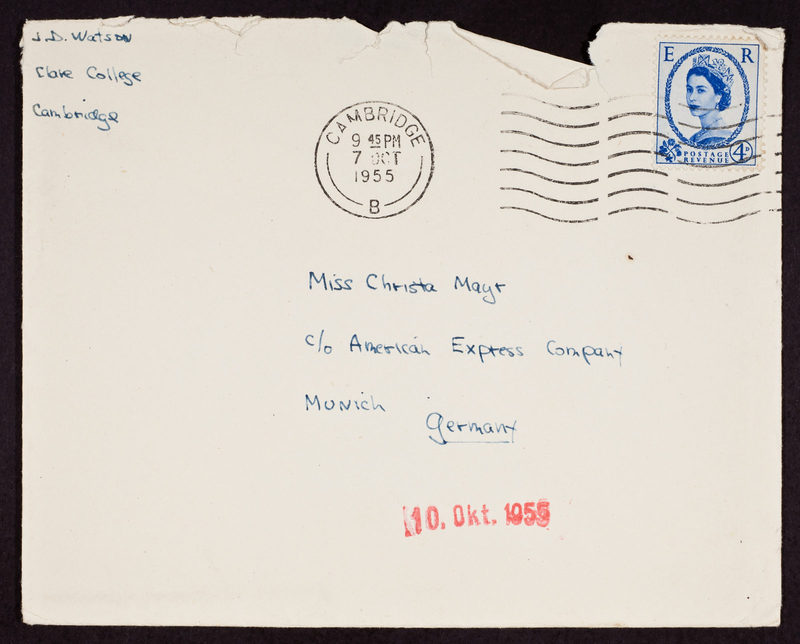 J.D. Watson
Clare College
Cambridge
CAMBRIDGE
9 45 PM
7 OCT
1955
B
E R
POSTAGE
REVENUE
4D
Miss Christa Mayr
c/o American Express Company
Munich
Germany
10. Okt. 1955